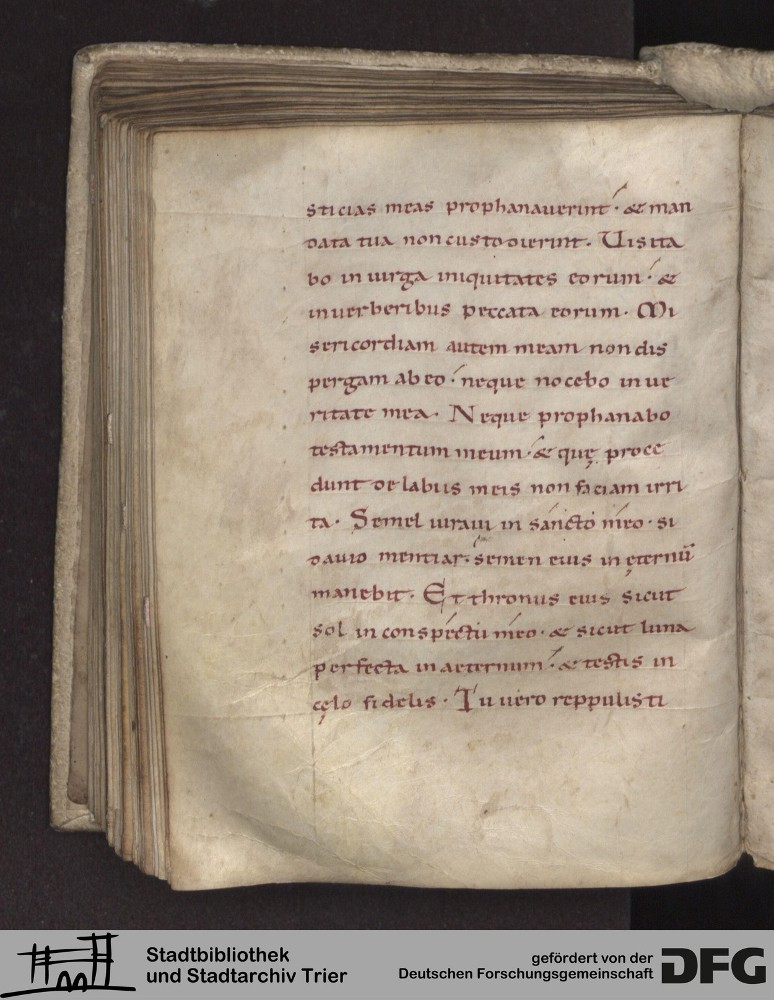 sticias meas prophanauerint · & man
data tua non custodierint · Uisita
bo in uirga iniquitates eorum · &
in uerberibus peccata eorum · Mi
sericordiam autem meam non dis
pergam ab eo · neque nocebo in ue
ritate mea · Neque prophanabo
testamentum meum · & quę proce
dunt de labiis meis non faciam irri
ta · Semel iuraui in sancto meo · si
dauid mentiar · semen eius in ęternū
manebit · Et thronus eius sicut
sol in conspectu meo · & sicut luna
perfecta in aeternum · & testis in
cęlo fidelis · Tu uero reppulisti
Stadtbibliothek
und Stadtarchiv Trier
gefördert von der
Deutschen Forschungsgemeinschaft
DFG